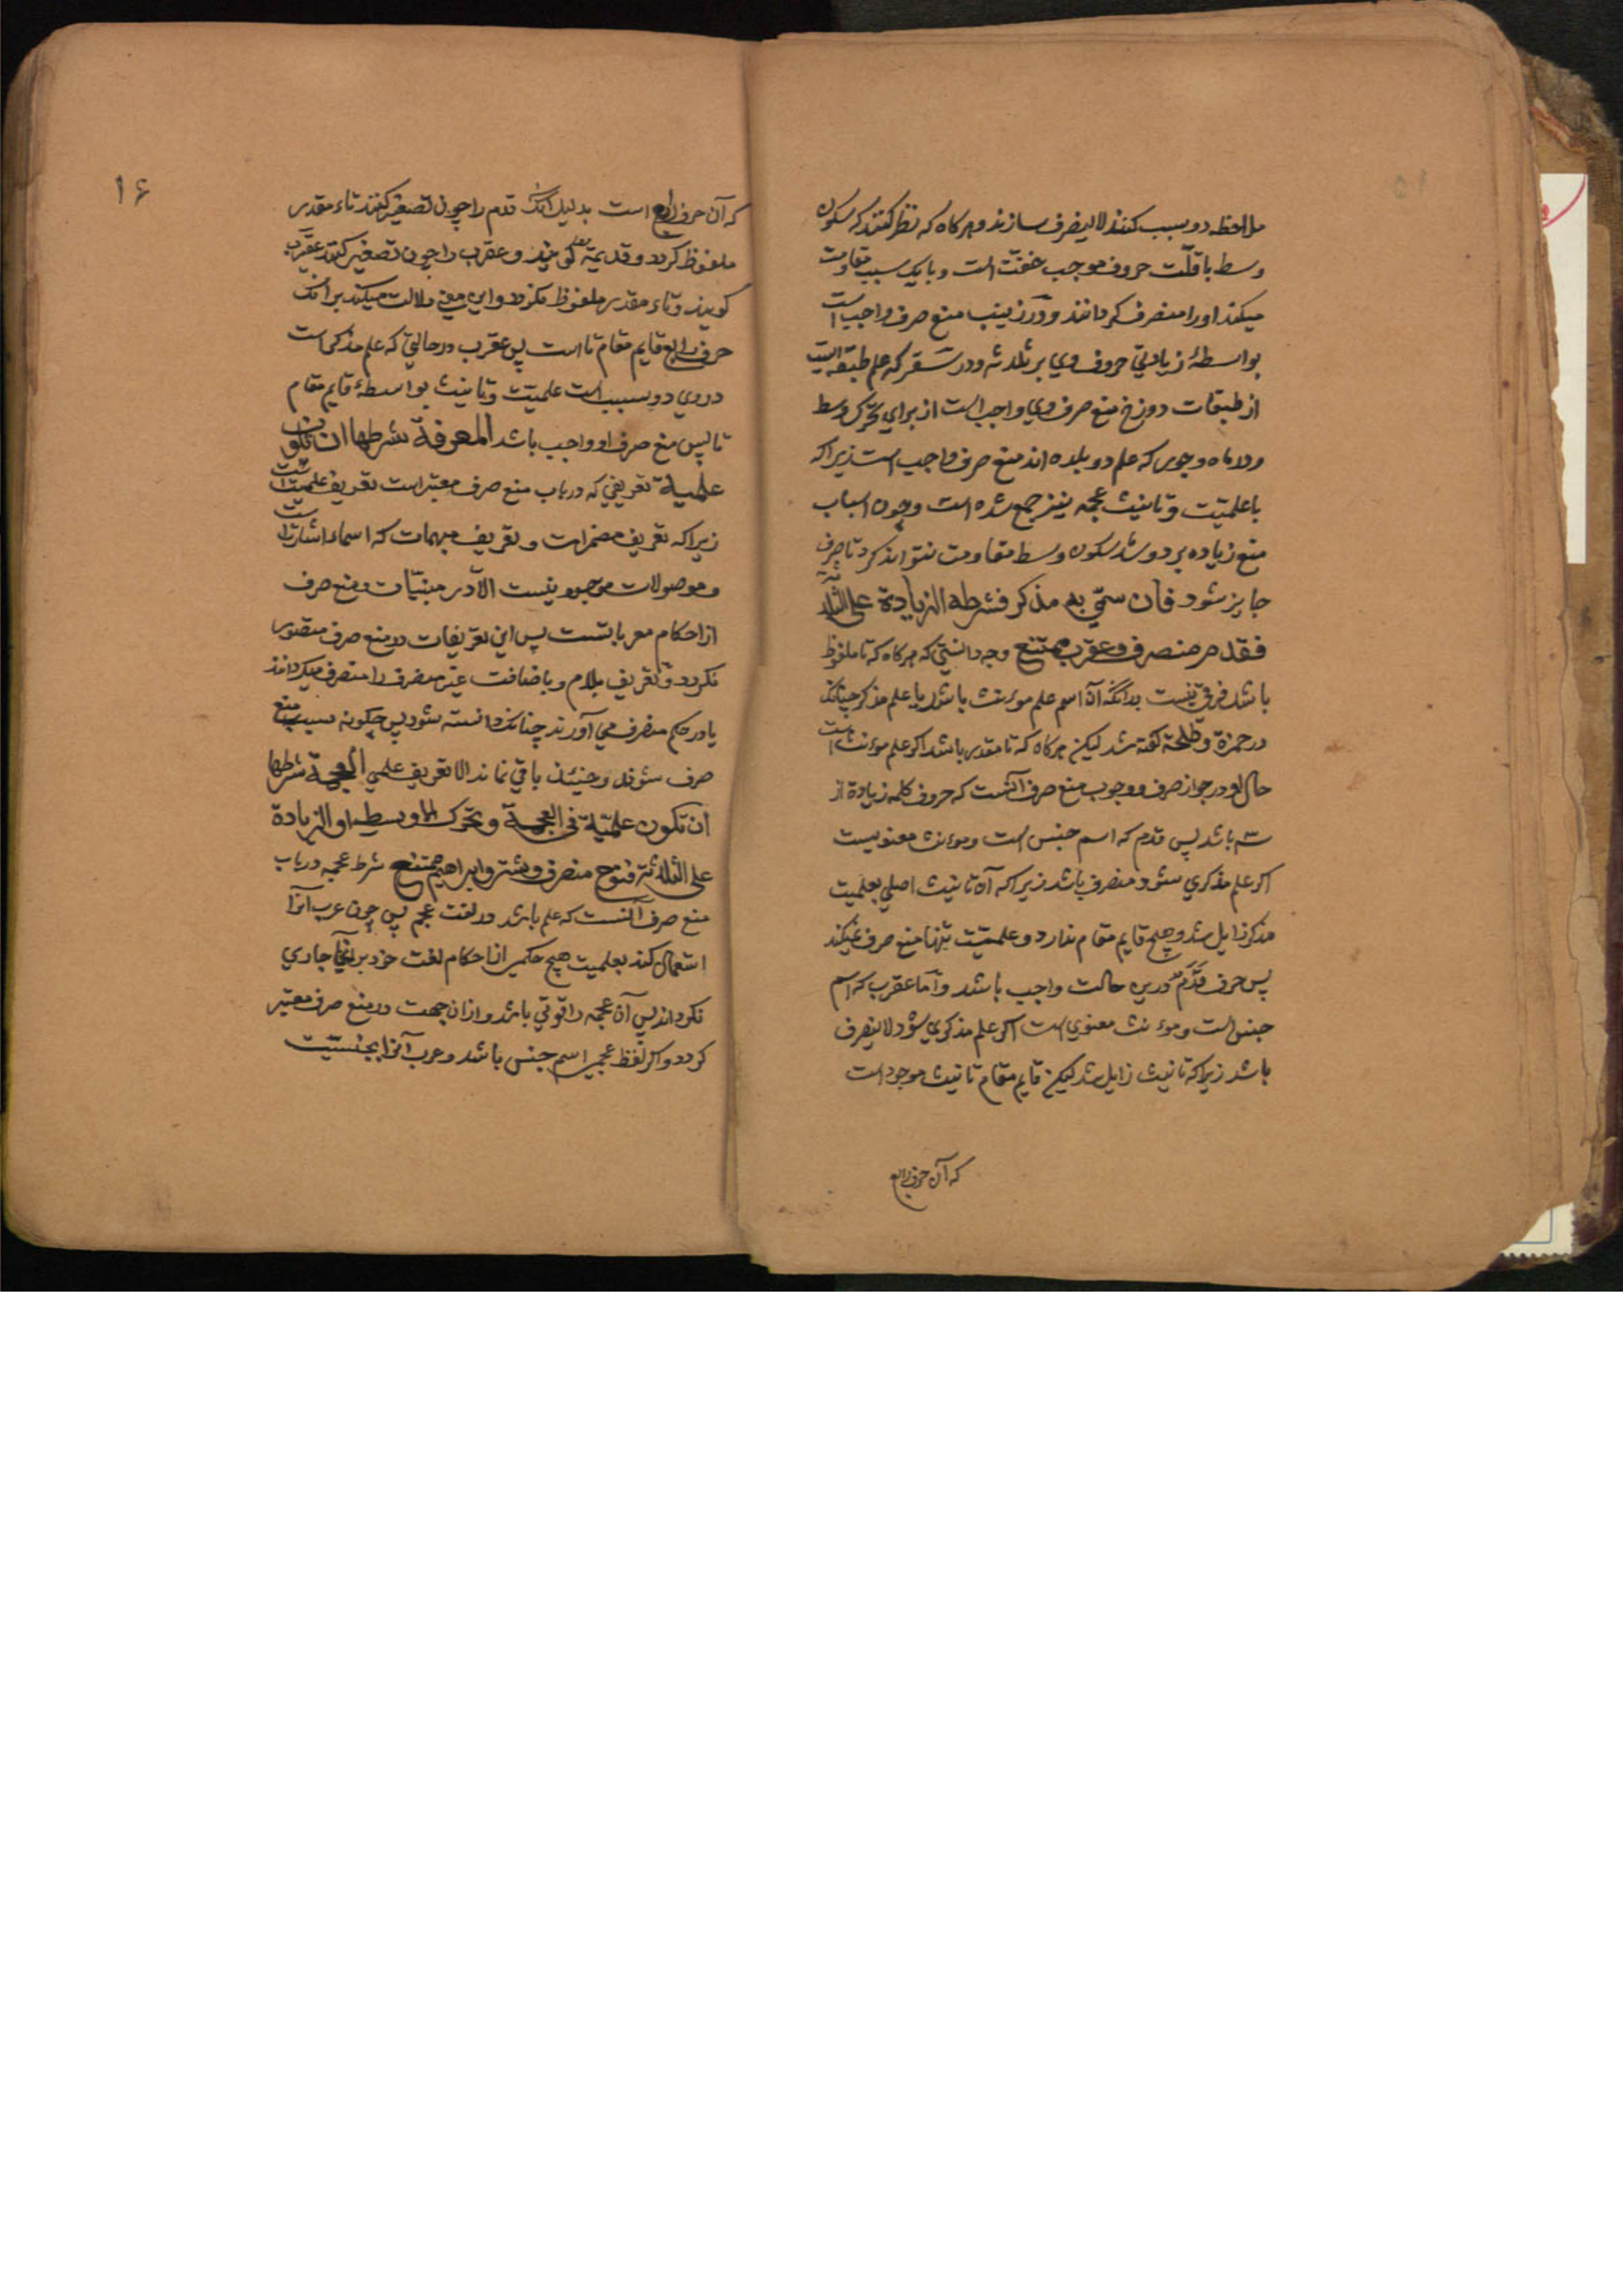 ملاحظه دو سبب کنند لاینصرف سازند و هرکاه که نظر کنند که سکون
وسط با قلّت حروف موجب خفّت است و با یک سبب مقاومت
میکند اورا منصرف کردانند و در زینب منع صرف واجب است
بواسطهٔ زیادتي حروف وي بر ثلاثه و در سَقَر که علم طبقه ایست
از طبقات دوزخ منع صرف وي واجب است از براي تحرّک وسط
و در ماه و جور که علم دو بلده اند منع صرف واجب است زیراکه
با علمیّت و تانیث عجمه نیز جمع شده است و چون اسباب
منع زیاده بر دو شد سکون وسط مقاومت نتواند کرد تا صرف
جایز شود فان سمّي به مذکر فشرطه الزیادة علی الثلاثة
فقدم منصرف و عقرب ممتنع وجه دانستي که هرکاه که تا ملفوظ
باشد فرق نیست بدانکه آن اسم علم موءنث باشد یا علم مذکر چنانک
در حمزة و طلحة کفته شد لیکن هرکاه که تا مقدر باشد اکر علم موءنث است
حال او در جواز صرف و وجوب منع صرف آنست که حروف کلمه زیادة از
سه باشد پس قدم که اسم جنس است و موءنث معنویست
اکر علم مذکري شود منصرف باشد زیراکه آن تانیث اصلي بعلمیت
مذکر زایل شد و هیچ قایم مقام ندارد و علمیّت تنها منع صرف نمیکند
پس صرف قَدَم درین حالت واجب باشد و اما عقرب که اسم
جنس است و موءنث معنوي است اکر علم مذکري شود لاینصرف
باشد زیراکه تانیث زایل شد لیکن قایم مقام تانیث موجود است
که آن حرف رابع
۱۶
که آن حرف رابع است بدلیل آنک قدم را چون تصغیر کنند تاء مقدر
ملفوظ کردد و قدیمة کویند و عقرب را چون تصغیر کنند عقیرب
کویند و تاء مقدر ملفوظ نکردد و این معني دلالت میکند برانک
حرف رابع قایم مقام تا است پس عقرب در حالتي که علم مذکر است
در وي دو سبب است علمیّت و تانیث بواسطهٔ قایم مقام
تا پس منع صرف او واجب باشد المعرفة شرطها ان تکون
علمیة تعریفي که در باب منع صرف معتبر است تعریف علمیت است
زیراکه تعریف مضمرات و تعریف مبهمات که اسماء اشارتست
و موصولات موجود نیست الّا در مبنیّات و منع صرف
از احکام معرباتست پس این تعریفات در منع صرف متصور
نکردد و تعریف بلام و باضافت غیر منصرف را منصرف میکردانند
یا در حکم منصرف مي آورند چنانک دانسته شود پس چکونه سبب منع
صرف شوند و حینئذ باقي نماند الا تعریف علمي العجمة شرطها
ان تکون علمیّة في العجمة و تحرک الاوسط او الزیادة
علی الثلاثة فنوح منصرف و شتر و ابراهیم ممتنع شرط عجمه در باب
منع صرف آنست که علم باشد در لغت عجم پس چون عرب آنرا
استعمال کند بعلمیت هیچ حکمي از احکام لغت خود بر آنجا جاري
نکرداند پس آن عجمه را قوّتي باشد و ازان جهت در منع صرف معتبر
کردد و اکر لفظ عجمي اسم جنس باشد و عرب آنرا بجنسیّت